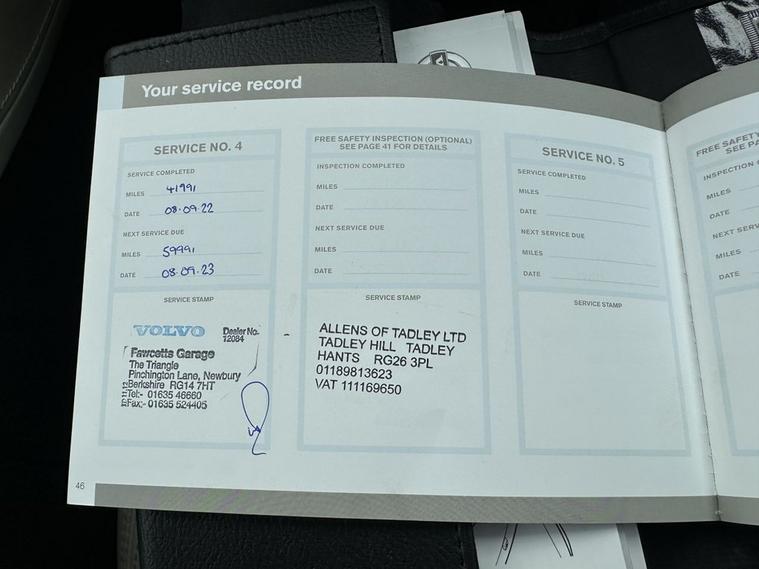 Your service record
SERVICE NO. 4
SERVICE COMPLETED
MILES 41991
DATE 08.09.22
NEXT SERVICE DUE
MILES 59991
DATE 08.09.23
SERVICE STAMP
VOLVO Dealer No.
12084
Fawcetts Garage
The Triangle
Pinchington Lane, Newbury
Berkshire RG14 7HT
Tel:- 01635 46660
Fax:- 01635 524405
FREE SAFETY INSPECTION (OPTIONAL)
SEE PAGE 41 FOR DETAILS
INSPECTION COMPLETED
MILES
DATE
NEXT SERVICE DUE
MILES
DATE
SERVICE STAMP
ALLENS OF TADLEY LTD
TADLEY HILL TADLEY
HANTS RG26 3PL
01189813623
VAT 111169650
SERVICE NO. 5
SERVICE COMPLETED
MILES
DATE
NEXT SERVICE DUE
MILES
DATE
SERVICE STAMP
FREE SAFETY
SEE PA
INSPECTION
MILES
DATE
NEXT SERV
MILES
DATE
46